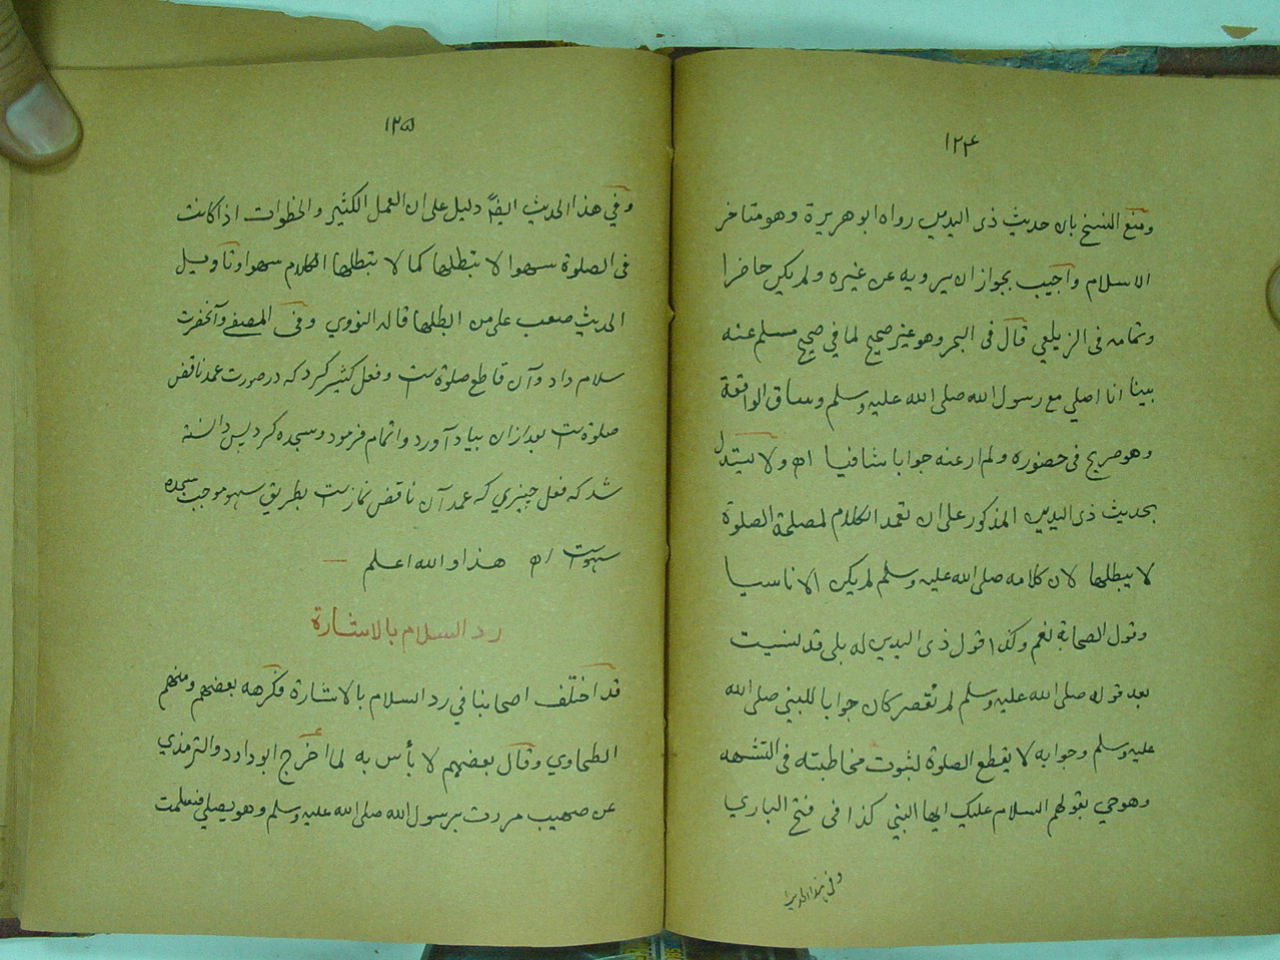 ١٢٤
ومنع النسخ بان حديث ذى اليدين رواه ابو هريرة وهو متاخر
الاسلام واجيب بجواز ان يرويه عن غيره ولم يكن حاضرا
وتمامه فى الزيلعي قال فى البحر وهو غير صحيح لما في صحيح مسلم عنه
بينا انا اصلي مع رسول الله صلى الله عليه وسلم وساق الواقعة
وهو صريح فى حضوره ولم ار عنه جوابا شافيا اه ولا يستدل
بحديث ذى اليدين المذكور على ان تعمد الكلام لمصلحة الصلوة
لا يبطلها لان كلامه صلى الله عليه وسلم لم يكن الا ناسيا
وقول الصحابة نعم وكذا قول ذى اليدين له بلى قد نسيت
بعد قوله صلى الله عليه وسلم لم تقصر كان جوابا للنبي صلى الله
عليه وسلم وجوابه لا يقطع الصلوة لثبوت مخاطبته فى التشهد
وهو حي بقولهم السلام عليك ايها النبي كذا فى فتح الباري
وفى هذا الحديث
١٢٥
وفي هذا الحديث ايضاً دليل على ان العمل الكثير والخطوات اذا كانت
فى الصلوة سهوا لا تبطلها كما لا تبطلها الكلام سهوا وتاويل
الحديث صعب على من ابطلها قاله النووي وفى المصفى وآنحضرت
سلام داد وآن قاطع صلوة ست وفعل كثير كرد كه در صورت عمد ناقض
صلوة ست بعد ازان بياد آورد واتمام فرمود وسجده كرد پس دانسته
شد كه فعل چيزي كه عمد آن ناقض نماز ست بطريق سهو موجب سجده
سهوست اه هذا والله اعلم
رد السلام بالاشارة
قد اختلف اصحابنا في رد السلام بالاشارة فكرهه بعضهم ومنهم
الطحاوي وقال بعضهم لا بأس به لما اخرج ابو داود والترمذي
عن صهيب مررت برسول الله صلى الله عليه وسلم وهو يصلي فسلمت